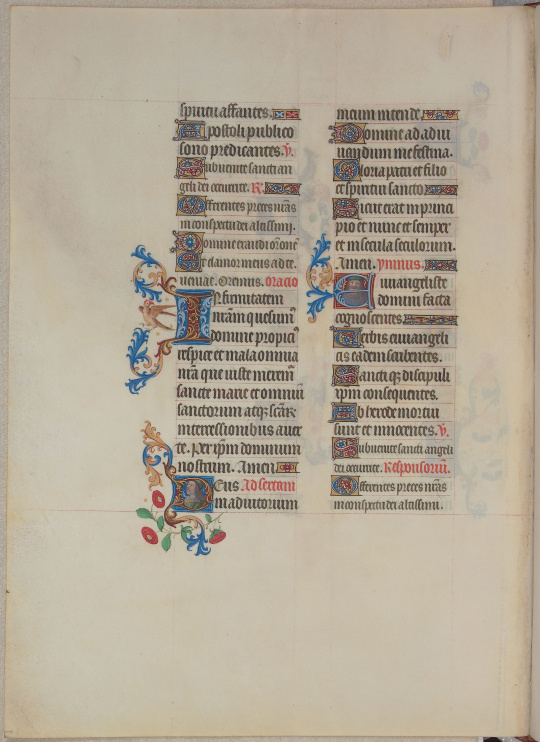 spiritu afflantes.
Apostoli publico
sono predicantes. V.
Subuenite sancti an
geli dei occurrite. R.
Offerentes preces nr̄as
in conspectu dei altissimi.
Domine exaudi or̄onē
Et clamor meus ad te
ueniat. Oremus. oracio
Infirmitatem
nr̄am quesum̄
domine propiciꝰ
respice et mala omnia
nr̄a que iuste meremur
sancte marie et omniū
sanctorum atqꝫ scār̄
intercessionibus auer
te. Per ip̄m dominum
nostrum. Amen
Deus Ad sertam
in adiutorium
meum intende
Domine ad adiu
uandum me festina.
Gloria patri et filio
et spiritui sancto
Sicut erat in princi
pio et nunc et semper
et in secula seculorum.
Amen. ymnus.
Euuangeliste
domini facta
cognoscentes
Verbis euuangeli
cis eadem scribentes.
Sancti qꝫ discipuli
ip̄m consequentes.
Ab herode mortui
sunt et innocentes. V.
Subuenite sancti angeli
dei occurrite. Responsoriū.
Offerentes preces nr̄as
in conspectu dei altissimi.